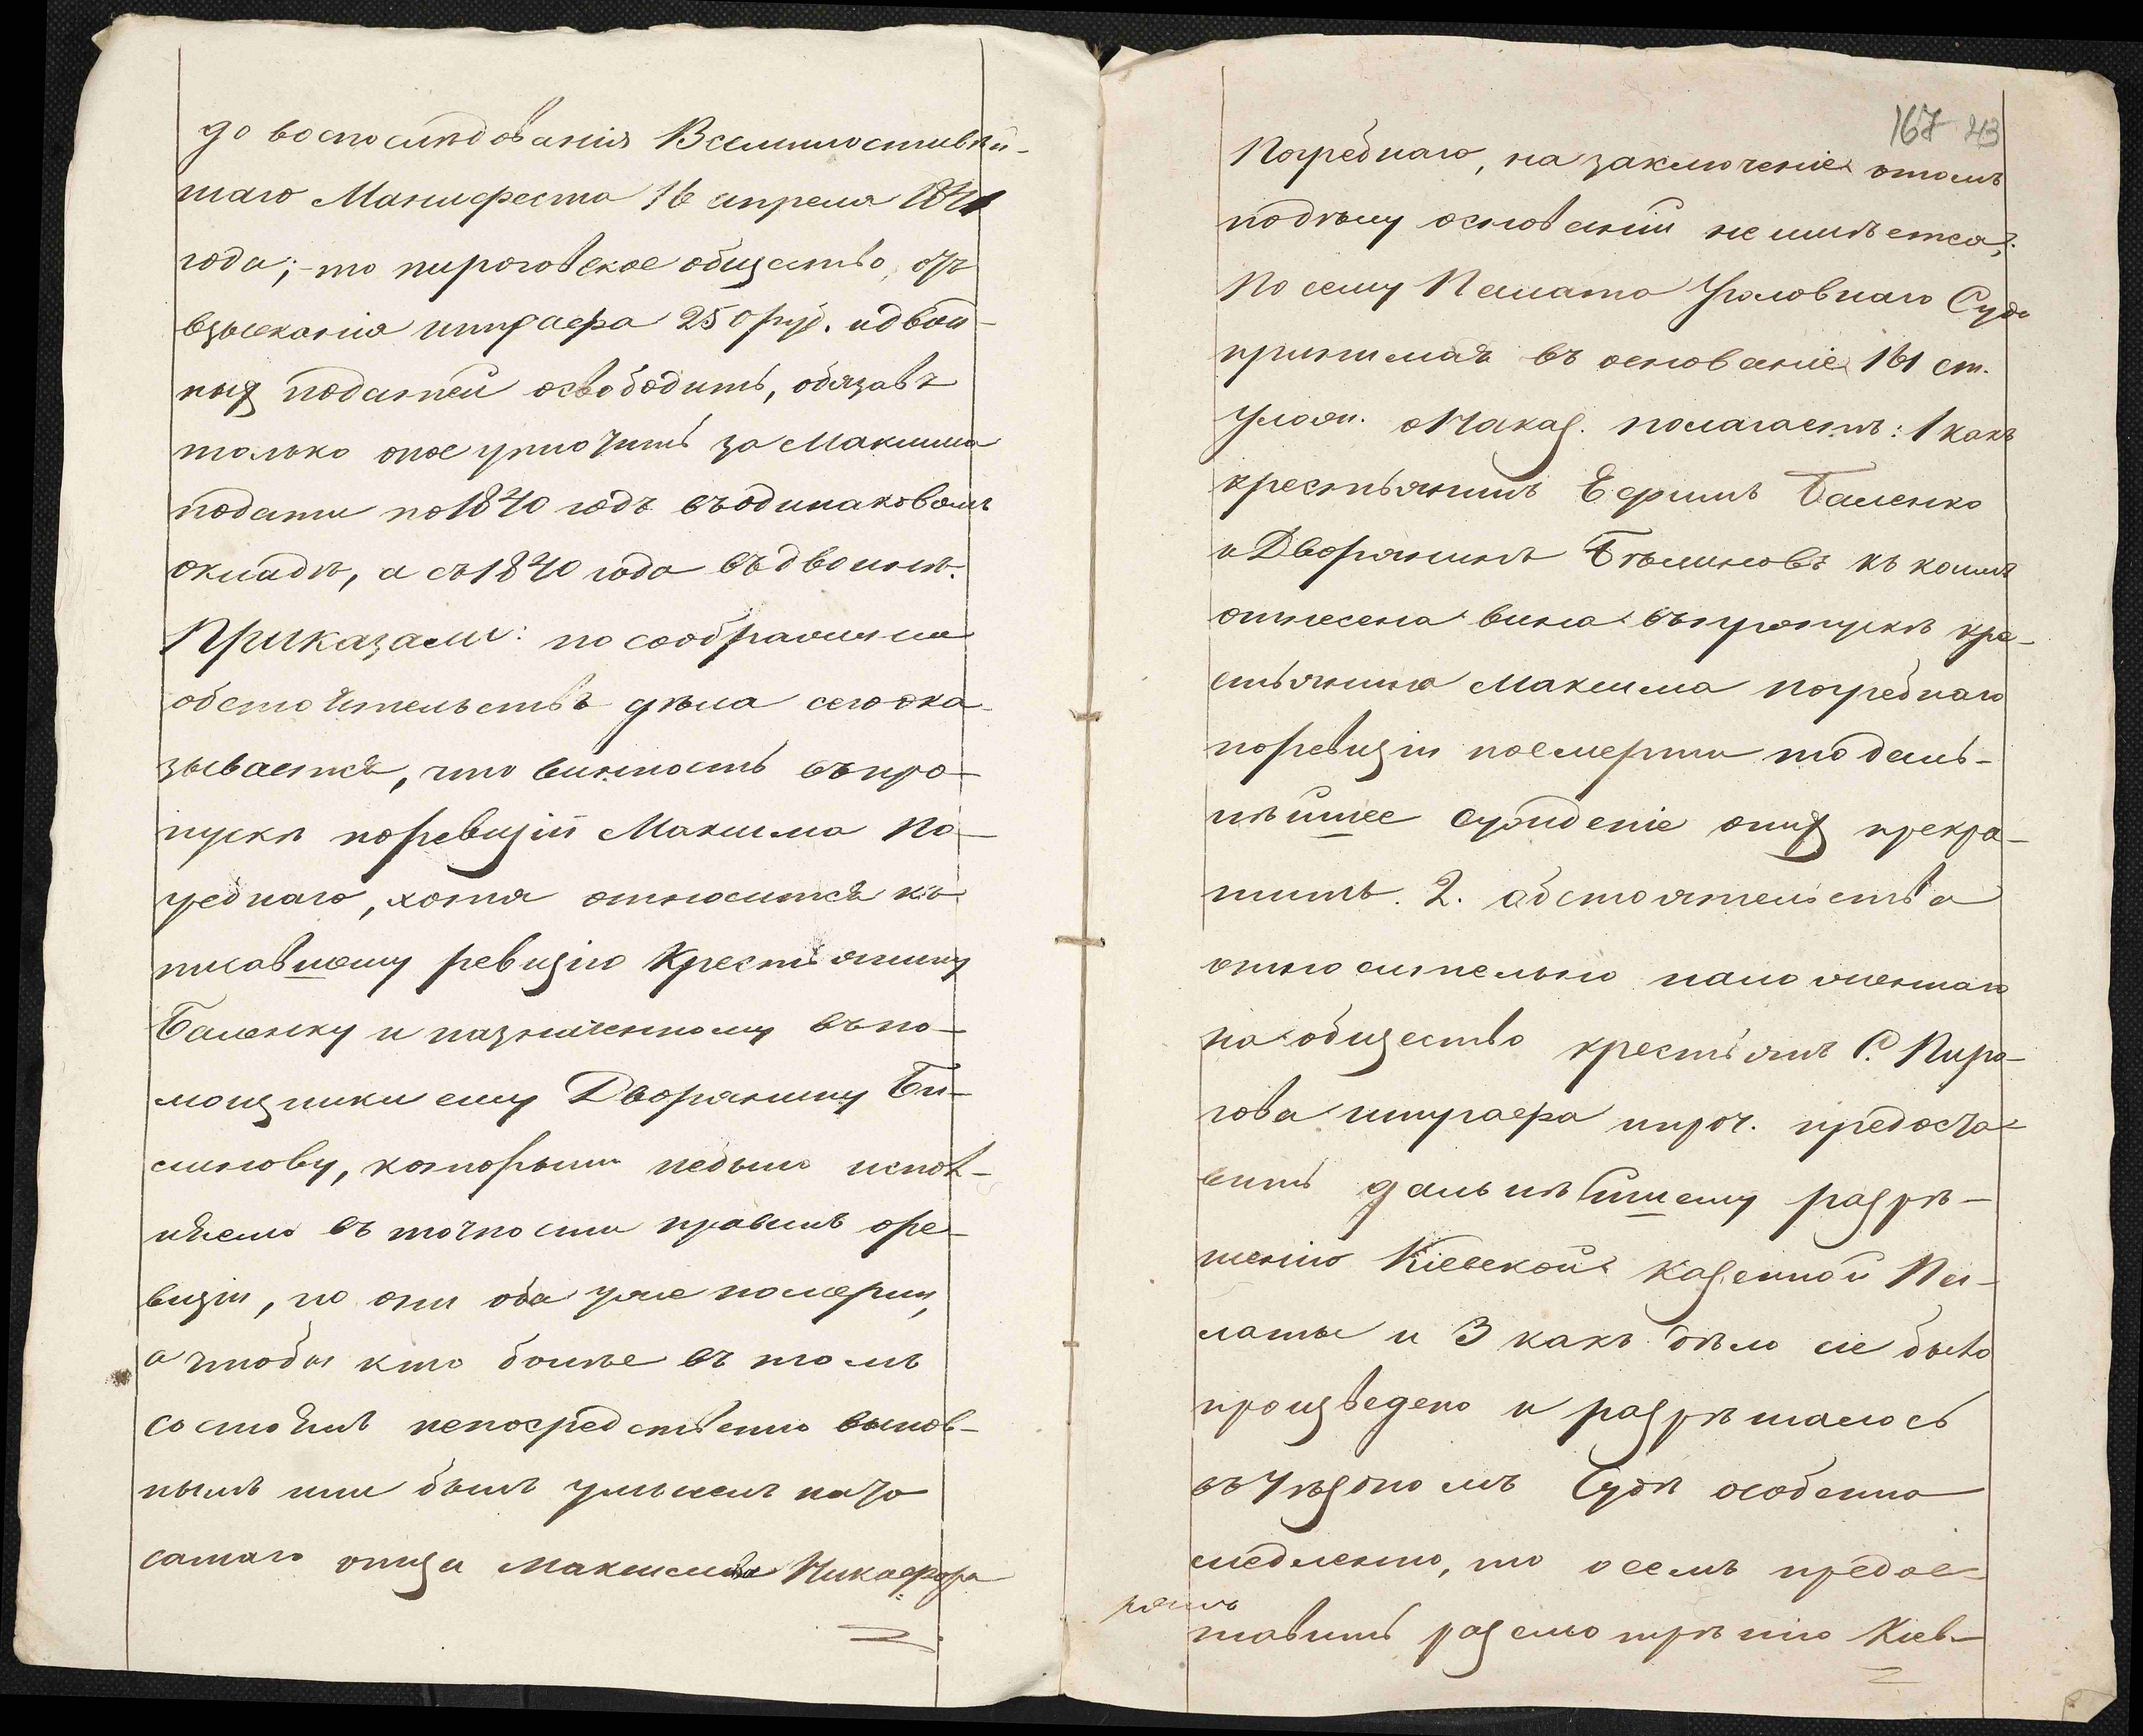 до воспослѣдованія Всемилостивѣй-
шаго Манифеста 16 апреля 1841
года;- то пироговское общество, отъ
взысканія штрафа 250 руб. и двой-
ныхъ податей освободить, обязавъ
только оное уплотить за Максима
подати по 1840 годъ въ одинаковомъ
окладѣ, а съ 1840 года въ двойнѣ.
Приказали: по соображеніи
обстоятельствъ дѣла сего ока-
зывается, что винность въ про-
пускѣ по ревизіи Максима По-
греднаго, хотя относится къ
писавшому ревизію Крестьянину
Баленку и назначенному въ по-
мощники ему Дворянину Би-
линову, которыми небыло испол-
нено въ точности правилъ о ре-
визіи, но они оба уже померли,
а чтобы кто болѣе въ томъ
состоялъ непосредственно винов-
нымъ или былъ умыселъ на то
самаго отца Максима Никифора
167 43
Погребнаго, на заключеніе о томъ
по дѣлу основаній не имѣется;
По сему Палата Уголовнаго Суда
принимая въ основаніе 161 ст.
Улож. о Наказ. полагаетъ: 1 какъ
крестьянинъ Ефимъ Баленко
и Дворянинъ Бѣлиновъ къ коимъ
отнесена вина въ пропускѣ кре-
стьянина Максима Погребнаго
по ревизіи померли то даль-
нѣйшее сужденіе о нихъ прекра-
тить. 2. обстоятельства
относительно наложеннаго
на общество крестьянъ С. Пиро-
гова штрафа и проч. предоста-
вить дальнѣйшему разрѣ-
шенію Кіевской Казенной Па-
латы и 3 какъ дѣло сіе было
произведено и разрѣшалось
въ Уѣздномъ Судѣ особенно
медленно, то о семъ предос-
тавить разсмотрѣнію Кіев-